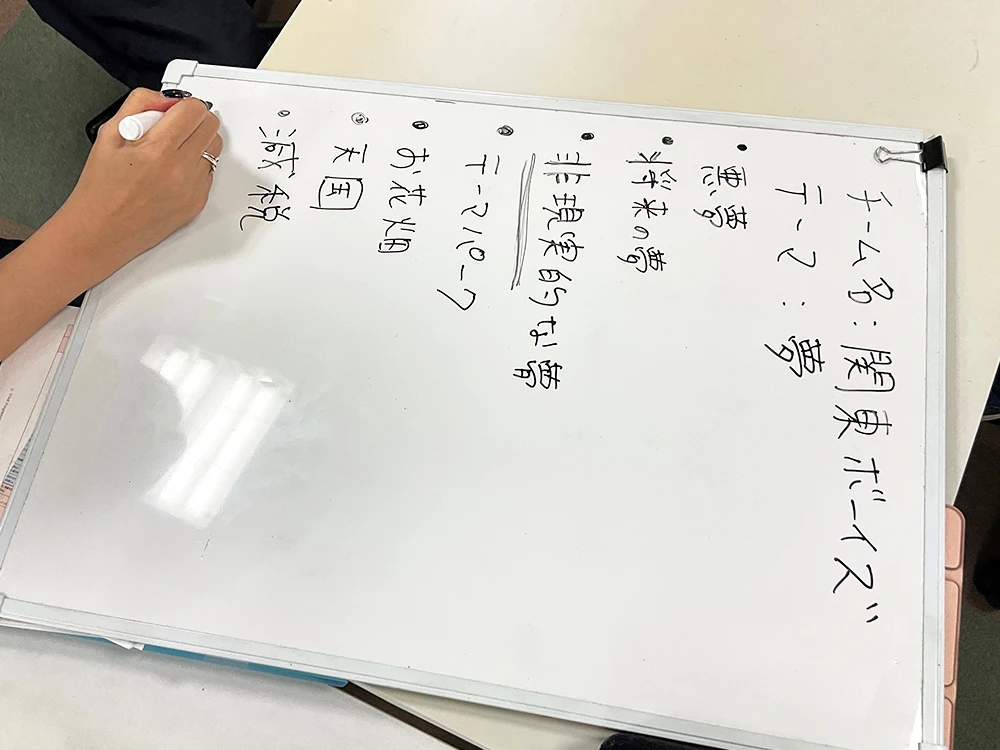 チーム名:関東ボーイズ
テーマ:夢
• 悪夢
• 将来の夢
• 非現実的な夢
• テーマパーク
• お花畑
• 天国
• 減税